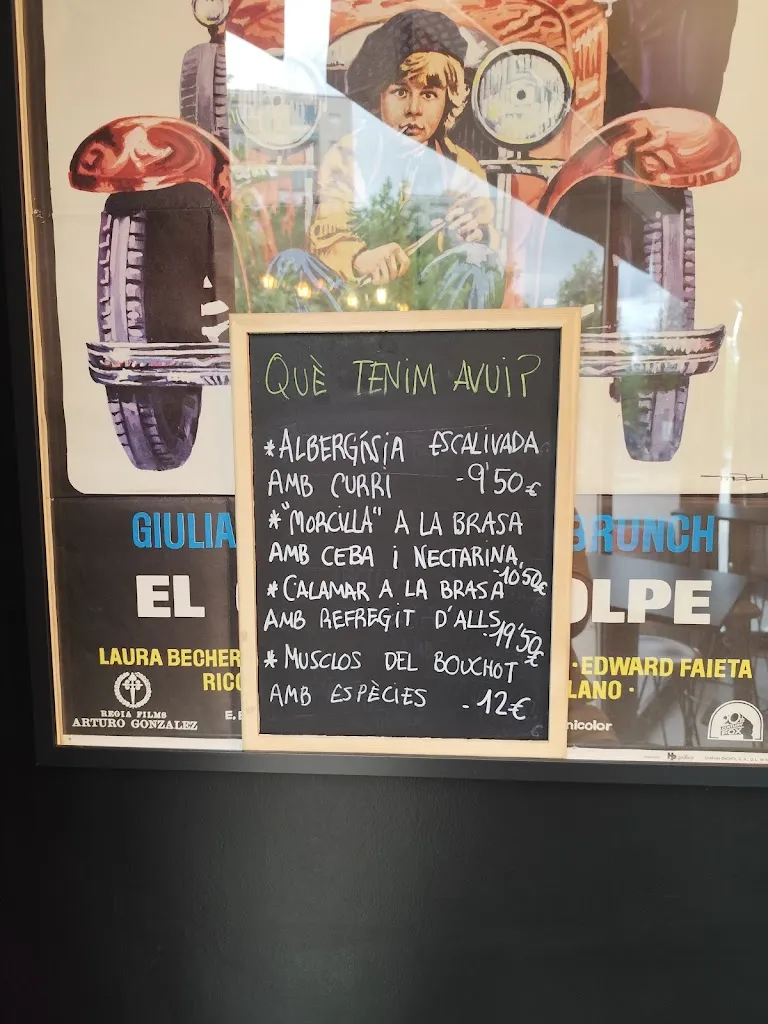 QUÈ TENIM AVUI?
*ALBERGÍNIA ESCALIVADA
AMB CURRI -9'50€
*"MORCILLA" A LA BRASA
AMB CEBA I NECTARINA,
-10'50€
*CALAMAR A LA BRASA
AMB REFREGIT D'ALLS
-19'50€
*MUSCLOS DEL BOUCHOT
AMB ESPÈCIES -12€
GIULIA BRUNCH
EL OLPE
LAURA BECHER · EDWARD FAIETA
RICC LANO ·
REGIA FILMS
ARTURO GONZALEZ
nicolor
FOX